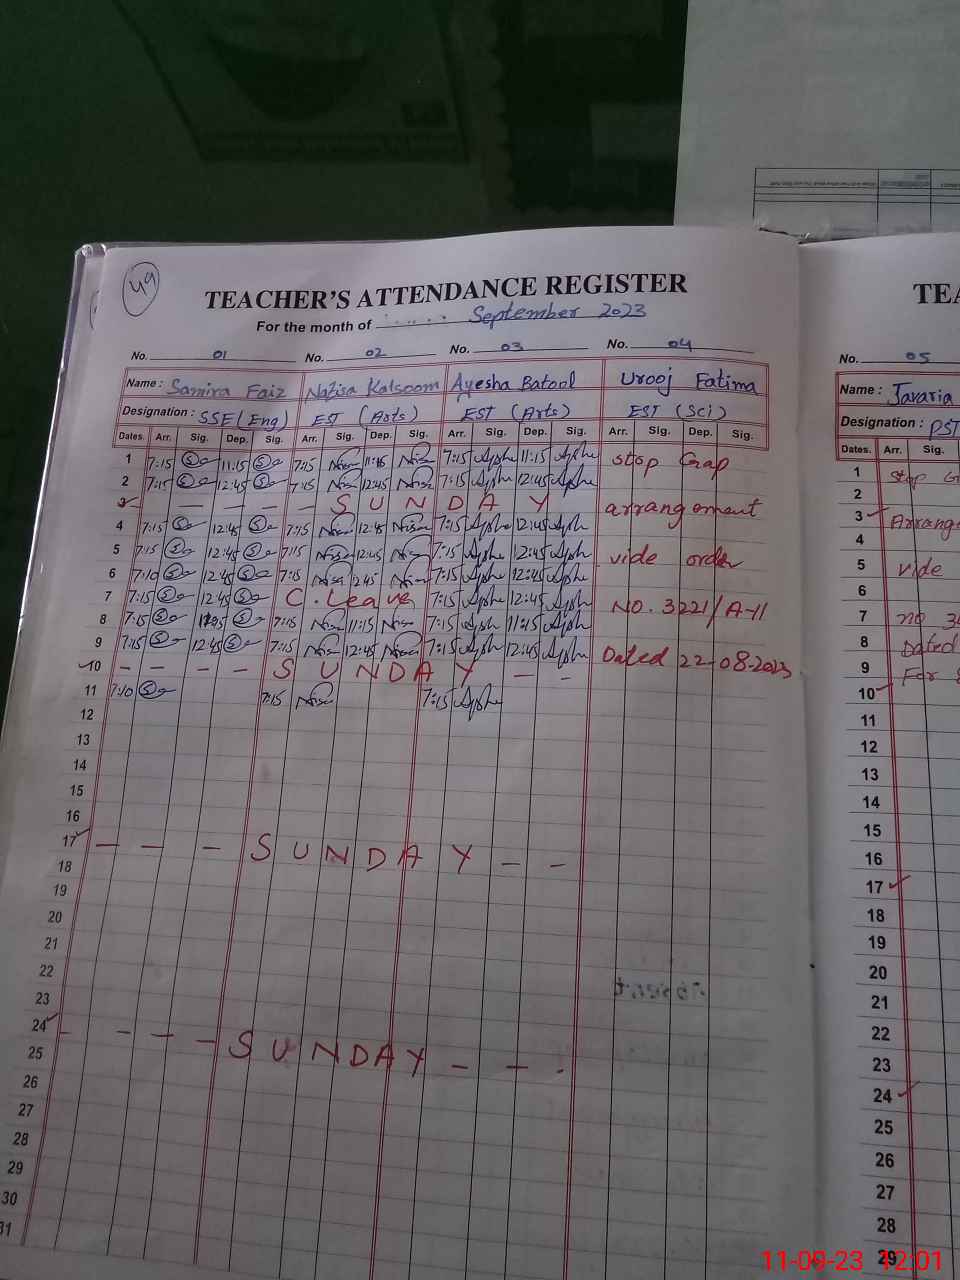 49
TEACHER'S ATTENDANCE REGISTER
For the month of ...... September 2023
No. 01 No. 02 No. 03 No. 04
Name: Samira Faiz Nafisa Kalsoom Ayesha Batool Urooj Fatima
Designation: SSE (Eng) EST (Arts) EST (Arts) EST (Sci)
Dates. Arr. Sig. Dep. Sig. Arr. Sig. Dep. Sig. Arr. Sig. Dep. Sig. Arr. Sig. Dep. Sig.
1 7:15 11:15 7:15 11:15 7:15 11:15 stop Gap
2 7:15 12:45 7:15 12:45 7:15 12:45
3 - - - - - S U N D A Y arrangement
4 7:15 12:45 7:15 12:45 7:15 12:45
5 7:15 12:45 7:15 12:45 7:15 12:45 vide order
6 7:10 12:45 7:15 12:45 7:15 12:45
7 7:15 12:45 C. Leave 7:15 12:45 NO. 3221/A-11
8 7:15 7:15 11:15 7:15 11:15
9 7:15 12:45 7:15 12:45 7:15 12:45 Dated 22-08-2023
10 - - - - S U N D A Y - -
11 7:10 7:15 7:15
12
13
14
15
16
17 - - - S U N D A Y - -
18
19
20
21
22
23
24 - - - - S U N D A Y - - -
25
26
27
28
29
30
31
TEA
No. 05
Name: Javaria
Designation: PST
Dates. Arr. Sig.
1 stop
2
3 Arrang
4
5 vide
6
7 no
8 Dated
9 For
10
11
12
13
14
15
16
17
18
19
20
21
22
23
24
25
26
27
28
29
11-09-23 12:01